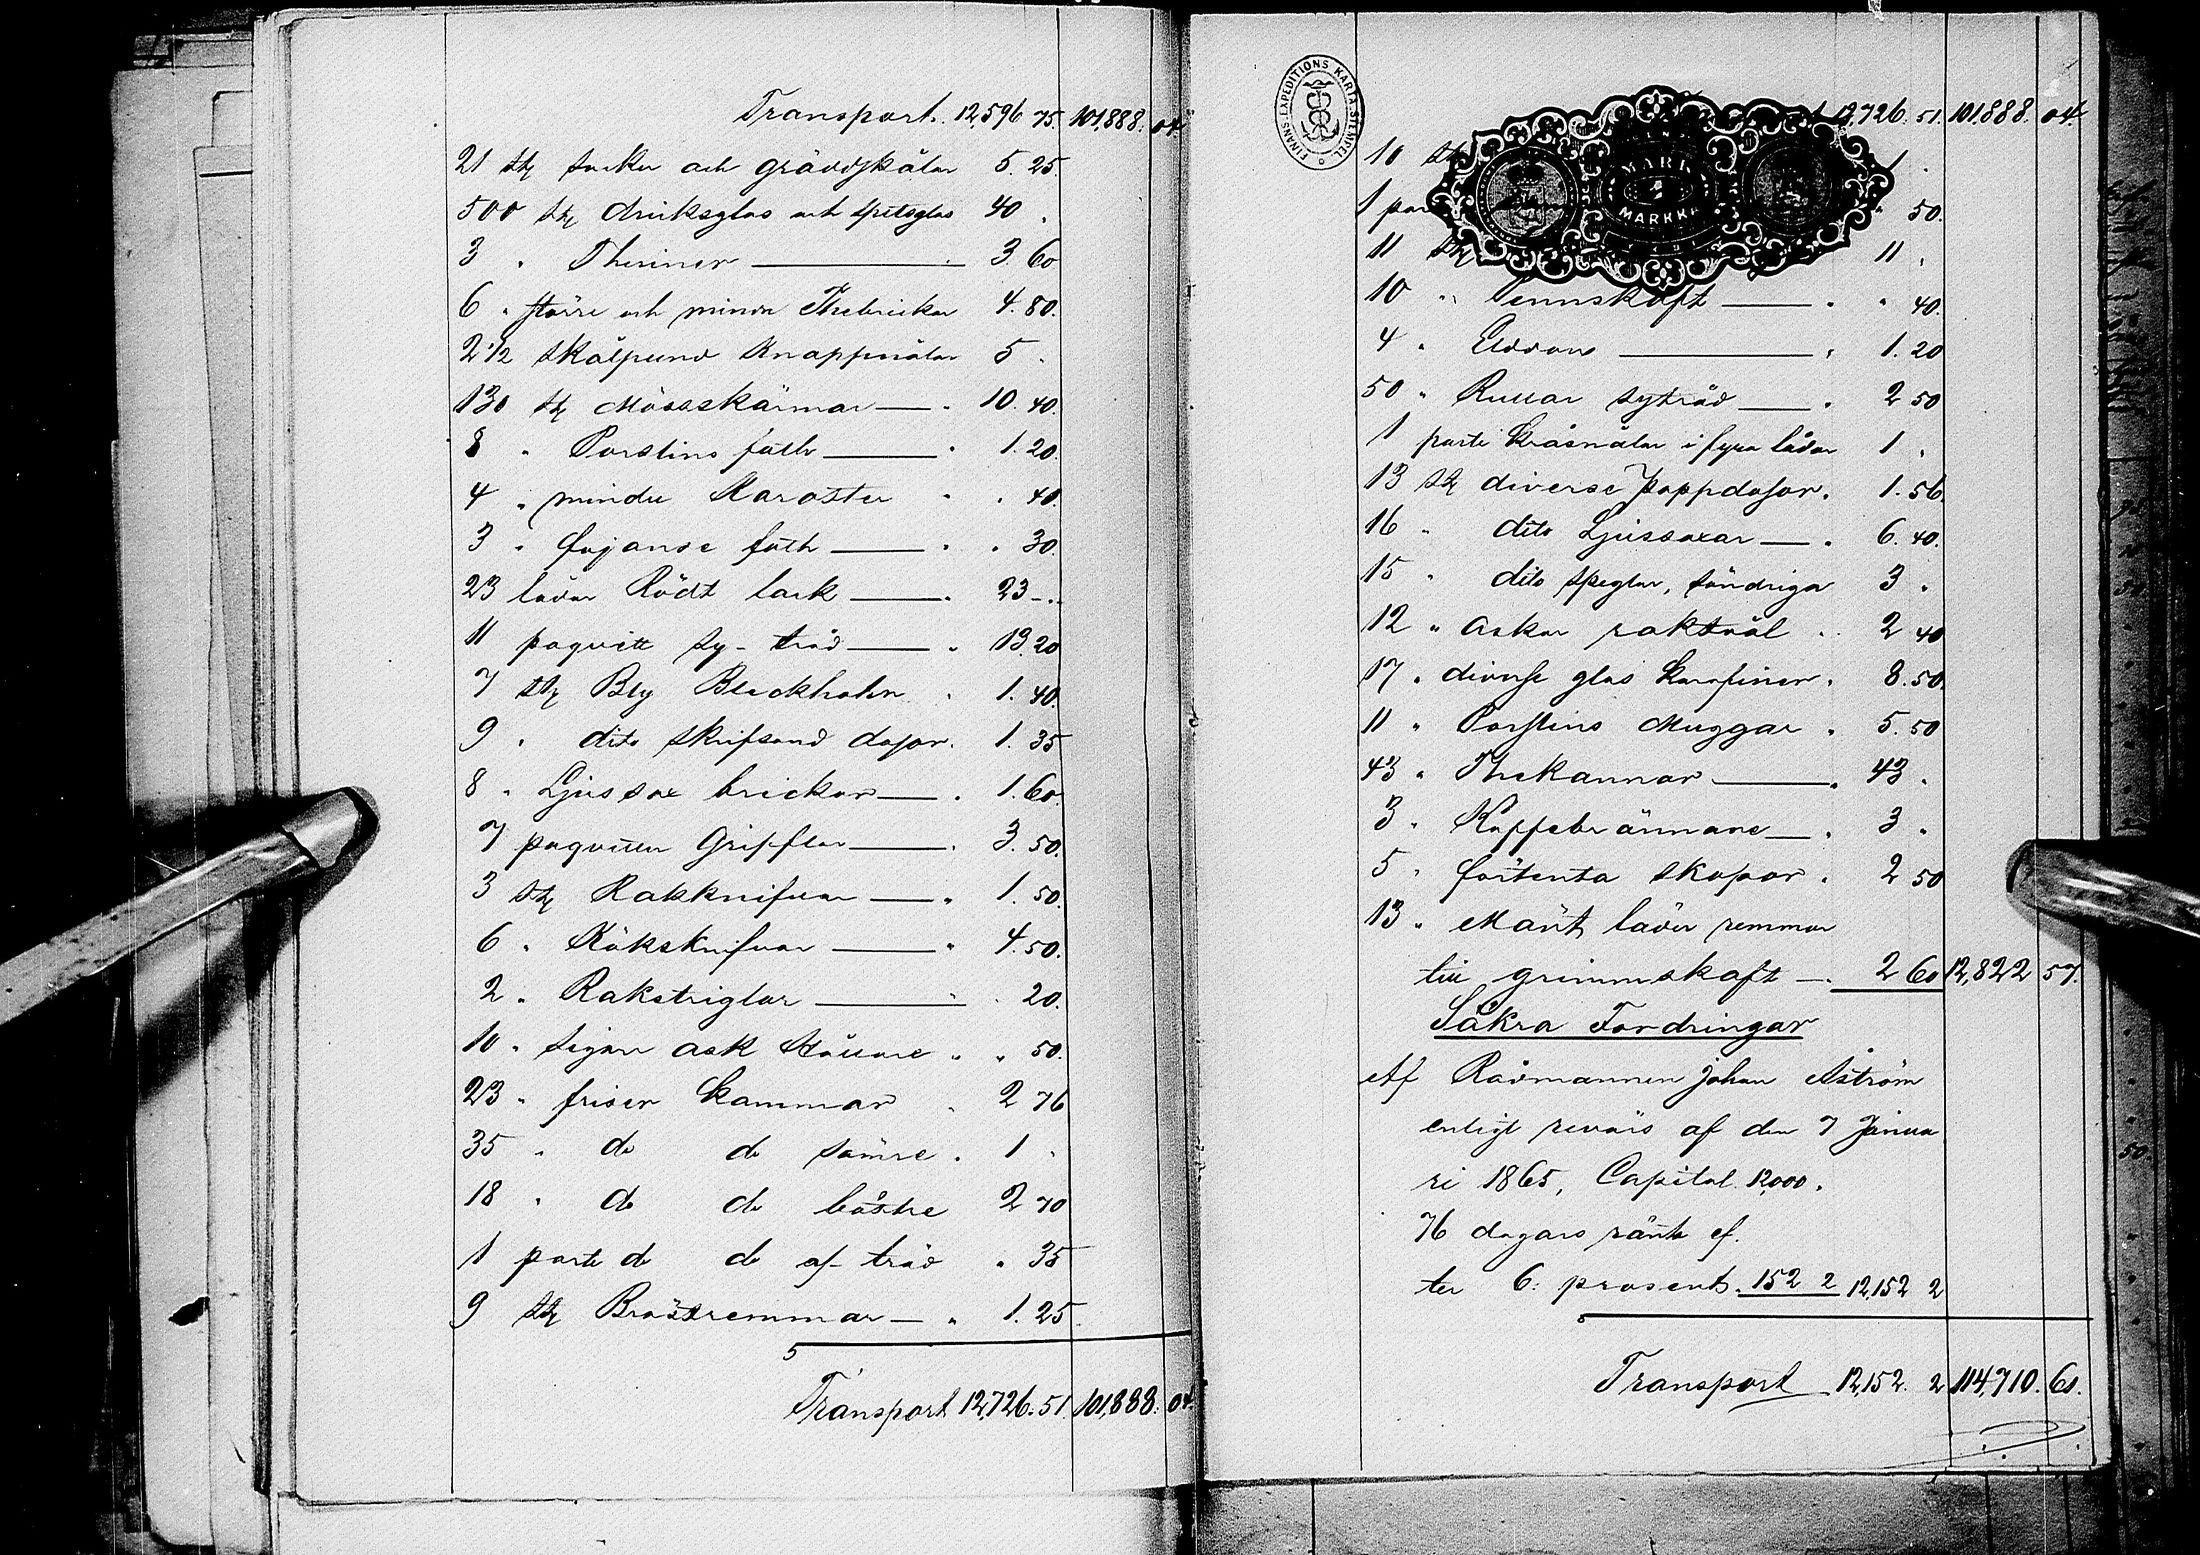 Transport. 12,596 75. 101,888. 04.
21 stk socker och gräddskålar 5. 25.
500 stk dricksglas och spetsglas 40 .
3 " Theiner 3. 60
6 " större och mindre Thebrickor 4. 80.
2 1/2 skålpund Knappnålar 5 .
130 stk Mösskärmar " 10. 40.
8 " Porslins fath " 1. 20.
4 " mindre Karotter " " 40.
3 " fajanse fath " " 30.
23 lådor Rödt lack " 23 -.
11 paquett sy-tråd " 13. 20
7 stk Bly Bleckhorn " 1. 40.
9 " dito skrifsand dosor. 1. 35
8 " Ljussax brickor " 1. 60.
7 paquetter Grifflar " 3. 50.
3 stk Rakknifvar " 1. 50.
6 " Köksknifvar " 4. 50.
2 " Rakstriglar " . 20.
10 " sigarr ask Hållare " " 50.
23 " friser kammar " 2 76
35 " do do sämre . 1 .
18 " do do bättre 2 70
1 parti do do af träd " 35
9 stk Bröstremmar " 1. 25.
5
Transport 12,726. 51. 101,888. 04.
FINANS-EXPEDITIONS KARTA-STEMPEL
12,726. 51. 101,888. 04.
10 stk 1 .
MARK
MARKKA
1 par " 50.
11 stk 11 .
10 " Pennskaft " " 40.
4 " Elddons " 1. 20
50 " Rullar sytråd " 2 50
1 parti kråsnålar i fyra lådor 1 .
13 stk diverse pappdosor. 1. 56
16 " dito Ljussaxar " 6. 40.
15 " dito speglar, söndriga 3 .
12 " askar raktvål .. 2 40
17 " diverse glas karafiner. 8. 50.
11 " Porslins Muggar . 5. 50
43 " Thekannor " 43 .
3 " Kaffebrännare " 3 .
5 " förtenta skopor . 2 50
13 " Märit läder remmar
till grimmskaft " 2 60 12,822 57.
Säkra Fordringar
Af Rådmannen Johan Åström
enligt revers af den 7 Janua
ri 1865, Capital 12,000.
76 dagars ränta ef.
ter 6: prosent. 152 2 12,152 2
Transport 12,152. 2 114,710. 61.